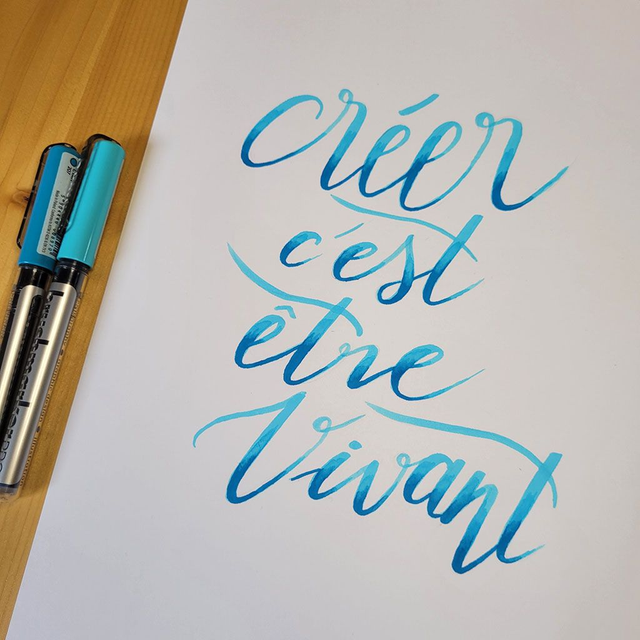 Créer
c'est
être
Vivant